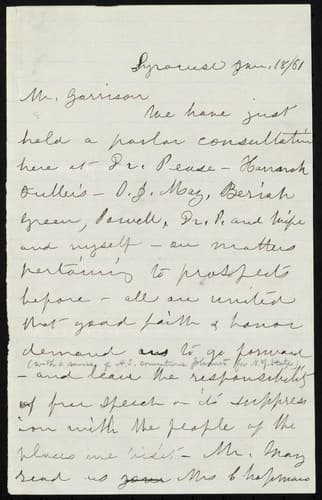 Syracuse Jan. 18/61
Mr. Garrison
We have just
held a parlor consultation
here at Dr. Pease - Hannah
Fuller's - S. J. May, Beriah
Green, Powell, Dr. P. and Wife
and myself - on matters
pertaining to prospects
before - all are united
that good faith & honor
demand us to go forward
(with a series of A.S. conventions for N.Y. State)
- and leave the responsibility
of free speech or its suppress
ion with the people of the
places we visit - Mr. May
read us your Mrs Chapmans